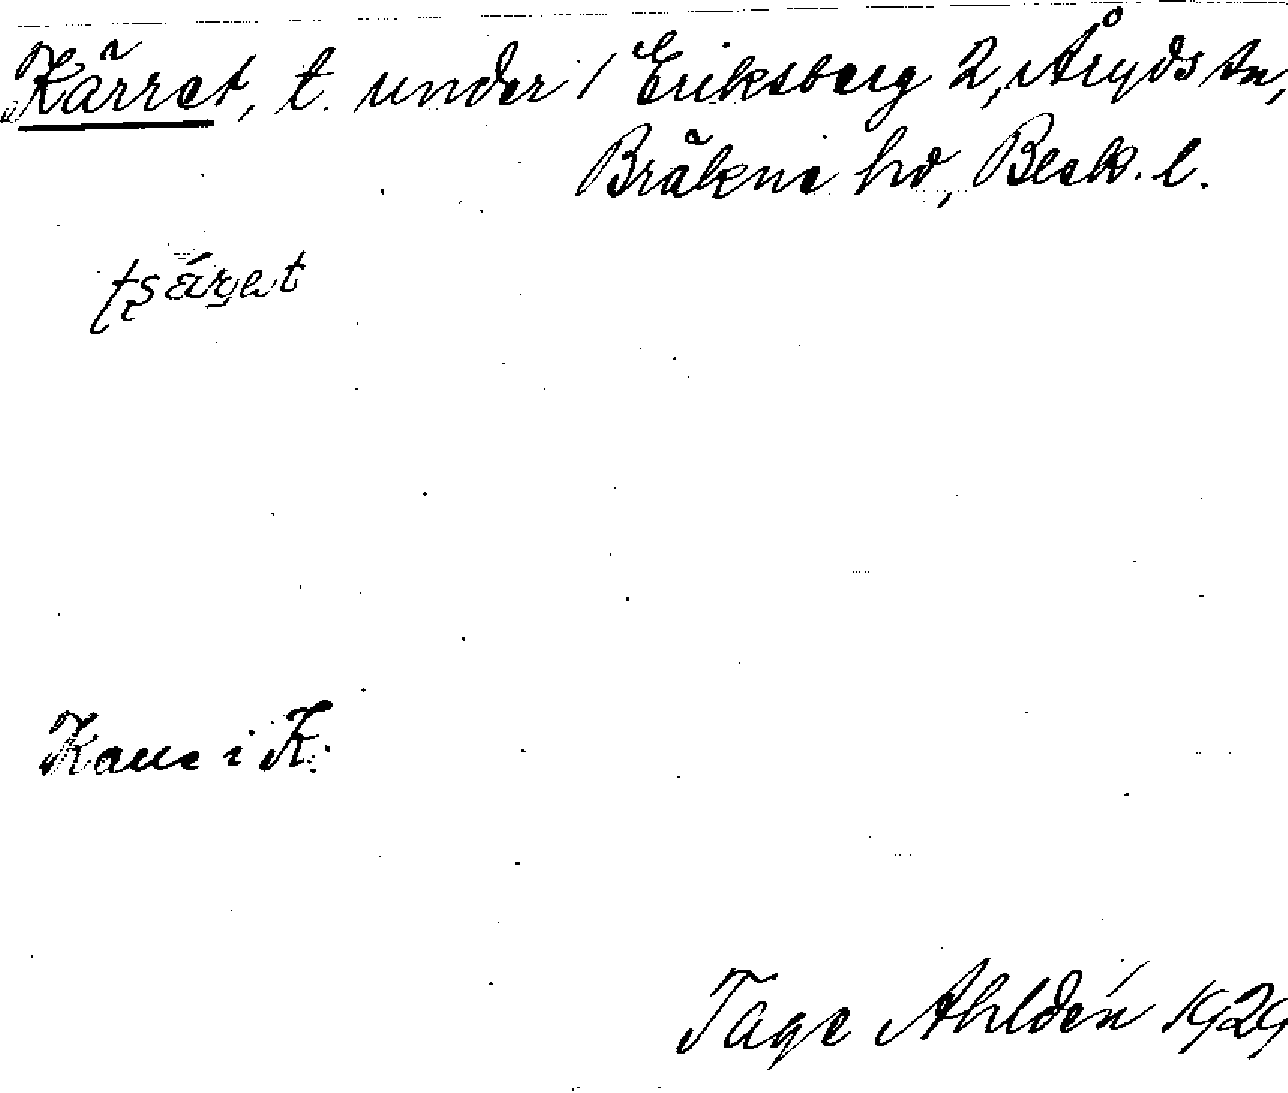 Kärret, t. under / Eriksberg 2, Åryds sn,
Bräkne hd, Blek. l.
tʂárat
Kane i K.
Tage Ahldén 1929